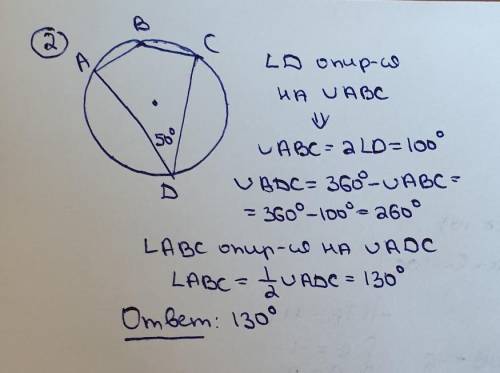 2
B
C
A
50°
D
∠D опир-ся
на ∪ABC
⇓
∪ABC = 2∠D = 100°
∪BDC = 360° - ∪ABC =
= 360° - 100° = 260°
∠ABC опир-ся на ∪ADC
∠ABC = 1/2 ∪ADC = 130°
Ответ: 130°